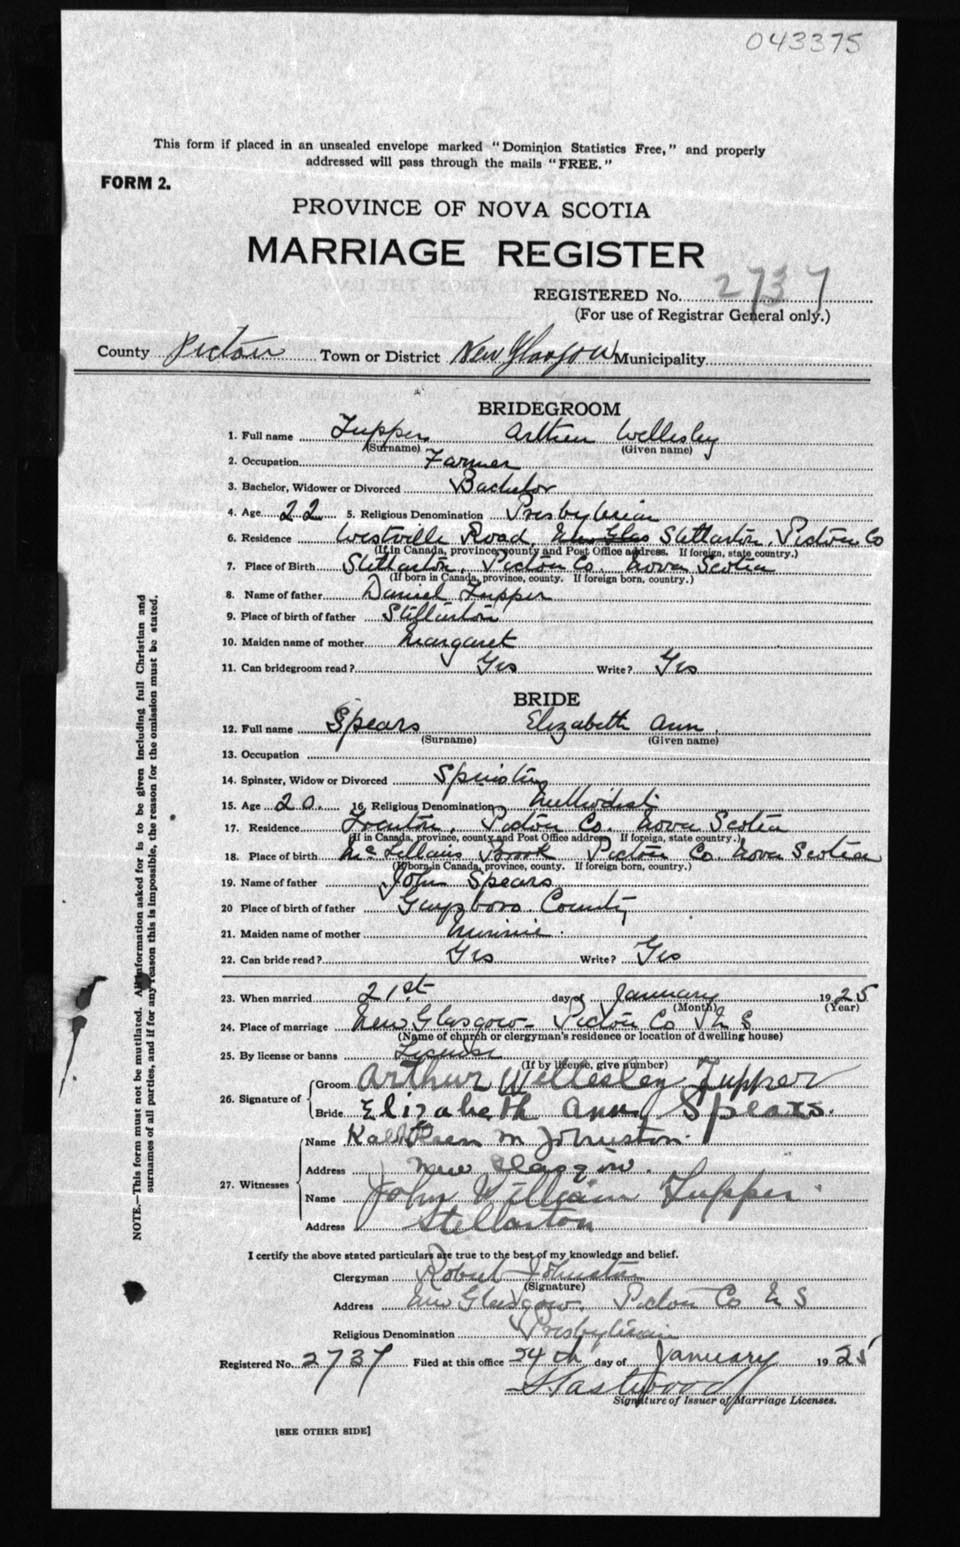 043375
This form if placed in an unsealed envelope marked "Dominion Statistics Free," and properly
addressed will pass through the mails "FREE."
FORM 2.
PROVINCE OF NOVA SCOTIA
MARRIAGE REGISTER
REGISTERED No. 2737
(For use of Registrar General only.)
County Pictou Town or District New Glasgow Municipality
BRIDEGROOM
1. Full name Tupper Arthur Wellesley
(Surname) (Given name)
2. Occupation Farmer
3. Bachelor, Widower or Divorced Bachelor
4. Age 22 5. Religious Denomination Presbyterian
6. Residence Westville Road, New Glas Stellarton, Pictou Co
(If in Canada, province, county and Post Office address. If foreign, state country.)
7. Place of Birth Stellarton, Pictou Co. Nova Scotia
(If born in Canada, province, county. If foreign born, country.)
8. Name of father Daniel Tupper
9. Place of birth of father Stellarton
10. Maiden name of mother Margaret
11. Can bridegroom read? Yes Write? Yes
BRIDE
12. Full name Spears Elizabeth Ann
(Surname) (Given name)
13. Occupation
14. Spinster, Widow or Divorced Spinster
15. Age 20. 16. Religious Denomination Methodist
17. Residence Trenton, Pictou Co. Nova Scotia
(If in Canada, province, county and Post Office address. If foreign, state country.)
18. Place of birth McLellans Brook Pictou Co. Nova Scotia
(If born in Canada, province, county. If foreign born, country.)
19. Name of father John Spears
20 Place of birth of father Guysboro County
21. Maiden name of mother Minnie.
22. Can bride read? Yes Write? Yes
23. When married 21st day of January 1925
(Month) (Year)
24. Place of marriage New Glasgow - Pictou Co N S
(Name of church or clergyman's residence or location of dwelling house)
25. By license or banns License
(If by license, give number)
26. Signature of Groom Arthur Wellesley Tupper
Bride Elizabeth Ann Spears.
27. Witnesses Name Kathleen M Johnston.
Address New Glasgow.
Name John William Tupper
Address Stellarton
I certify the above stated particulars are true to the best of my knowledge and belief.
Clergyman Robert Johnston
(Signature)
Address New Glasgow, Pictou Co N S
Religious Denomination Presbyterian
Registered No. 2737 Filed at this office 24th day of January 1925
Eastwood
Signature of Issuer of Marriage Licenses.
[SEE OTHER SIDE]
NOTE.—This form must not be mutilated. All information asked for is to be given including full Christian and
surnames of all parties, and if for any reason this is impossible, the reason for the omission must be stated.